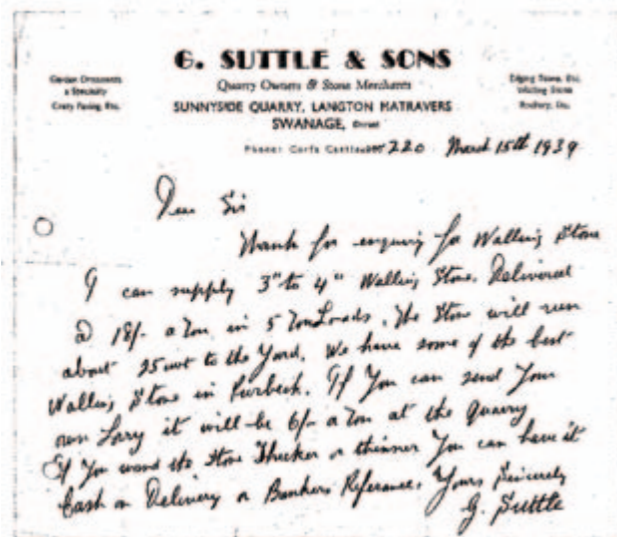 G. SUTTLE & SONS
Quarry Owners & Stone Merchants
SUNNYSIDE QUARRY, LANGTON MATRAVERS
SWANAGE, Dorset
Garden Ornaments
a Specialty
Crazy Paving, Etc.
Edging Stone, Etc.
Walling Stone
Rockery, Etc.
Phone: Corfe Castle 220 March 15th 1939
Dear Sir
Thank for enquiring for Walling Stone
I can supply 3" to 4" Walling Stone. Delivered
@ 18/- a Ton in 5 Ton Loads. The Stone will run
about 25 cwt to the Yard. We have some of the best
Walling Stone in Purbeck. If You can send Your
own Lorry it will be 6/- a Ton at the Quarry
If You want the Stone Thicker or thinner You can have it
Cash on Delivery or Bankers Reference. Yours Sincerely
G. Suttle